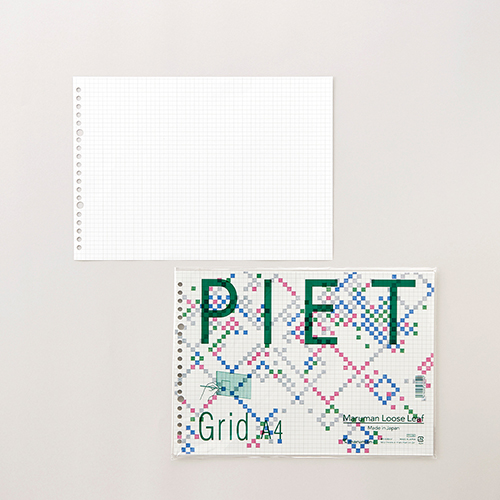 PIET
Grid A4
Maruman Loose Leaf
Made in Japan